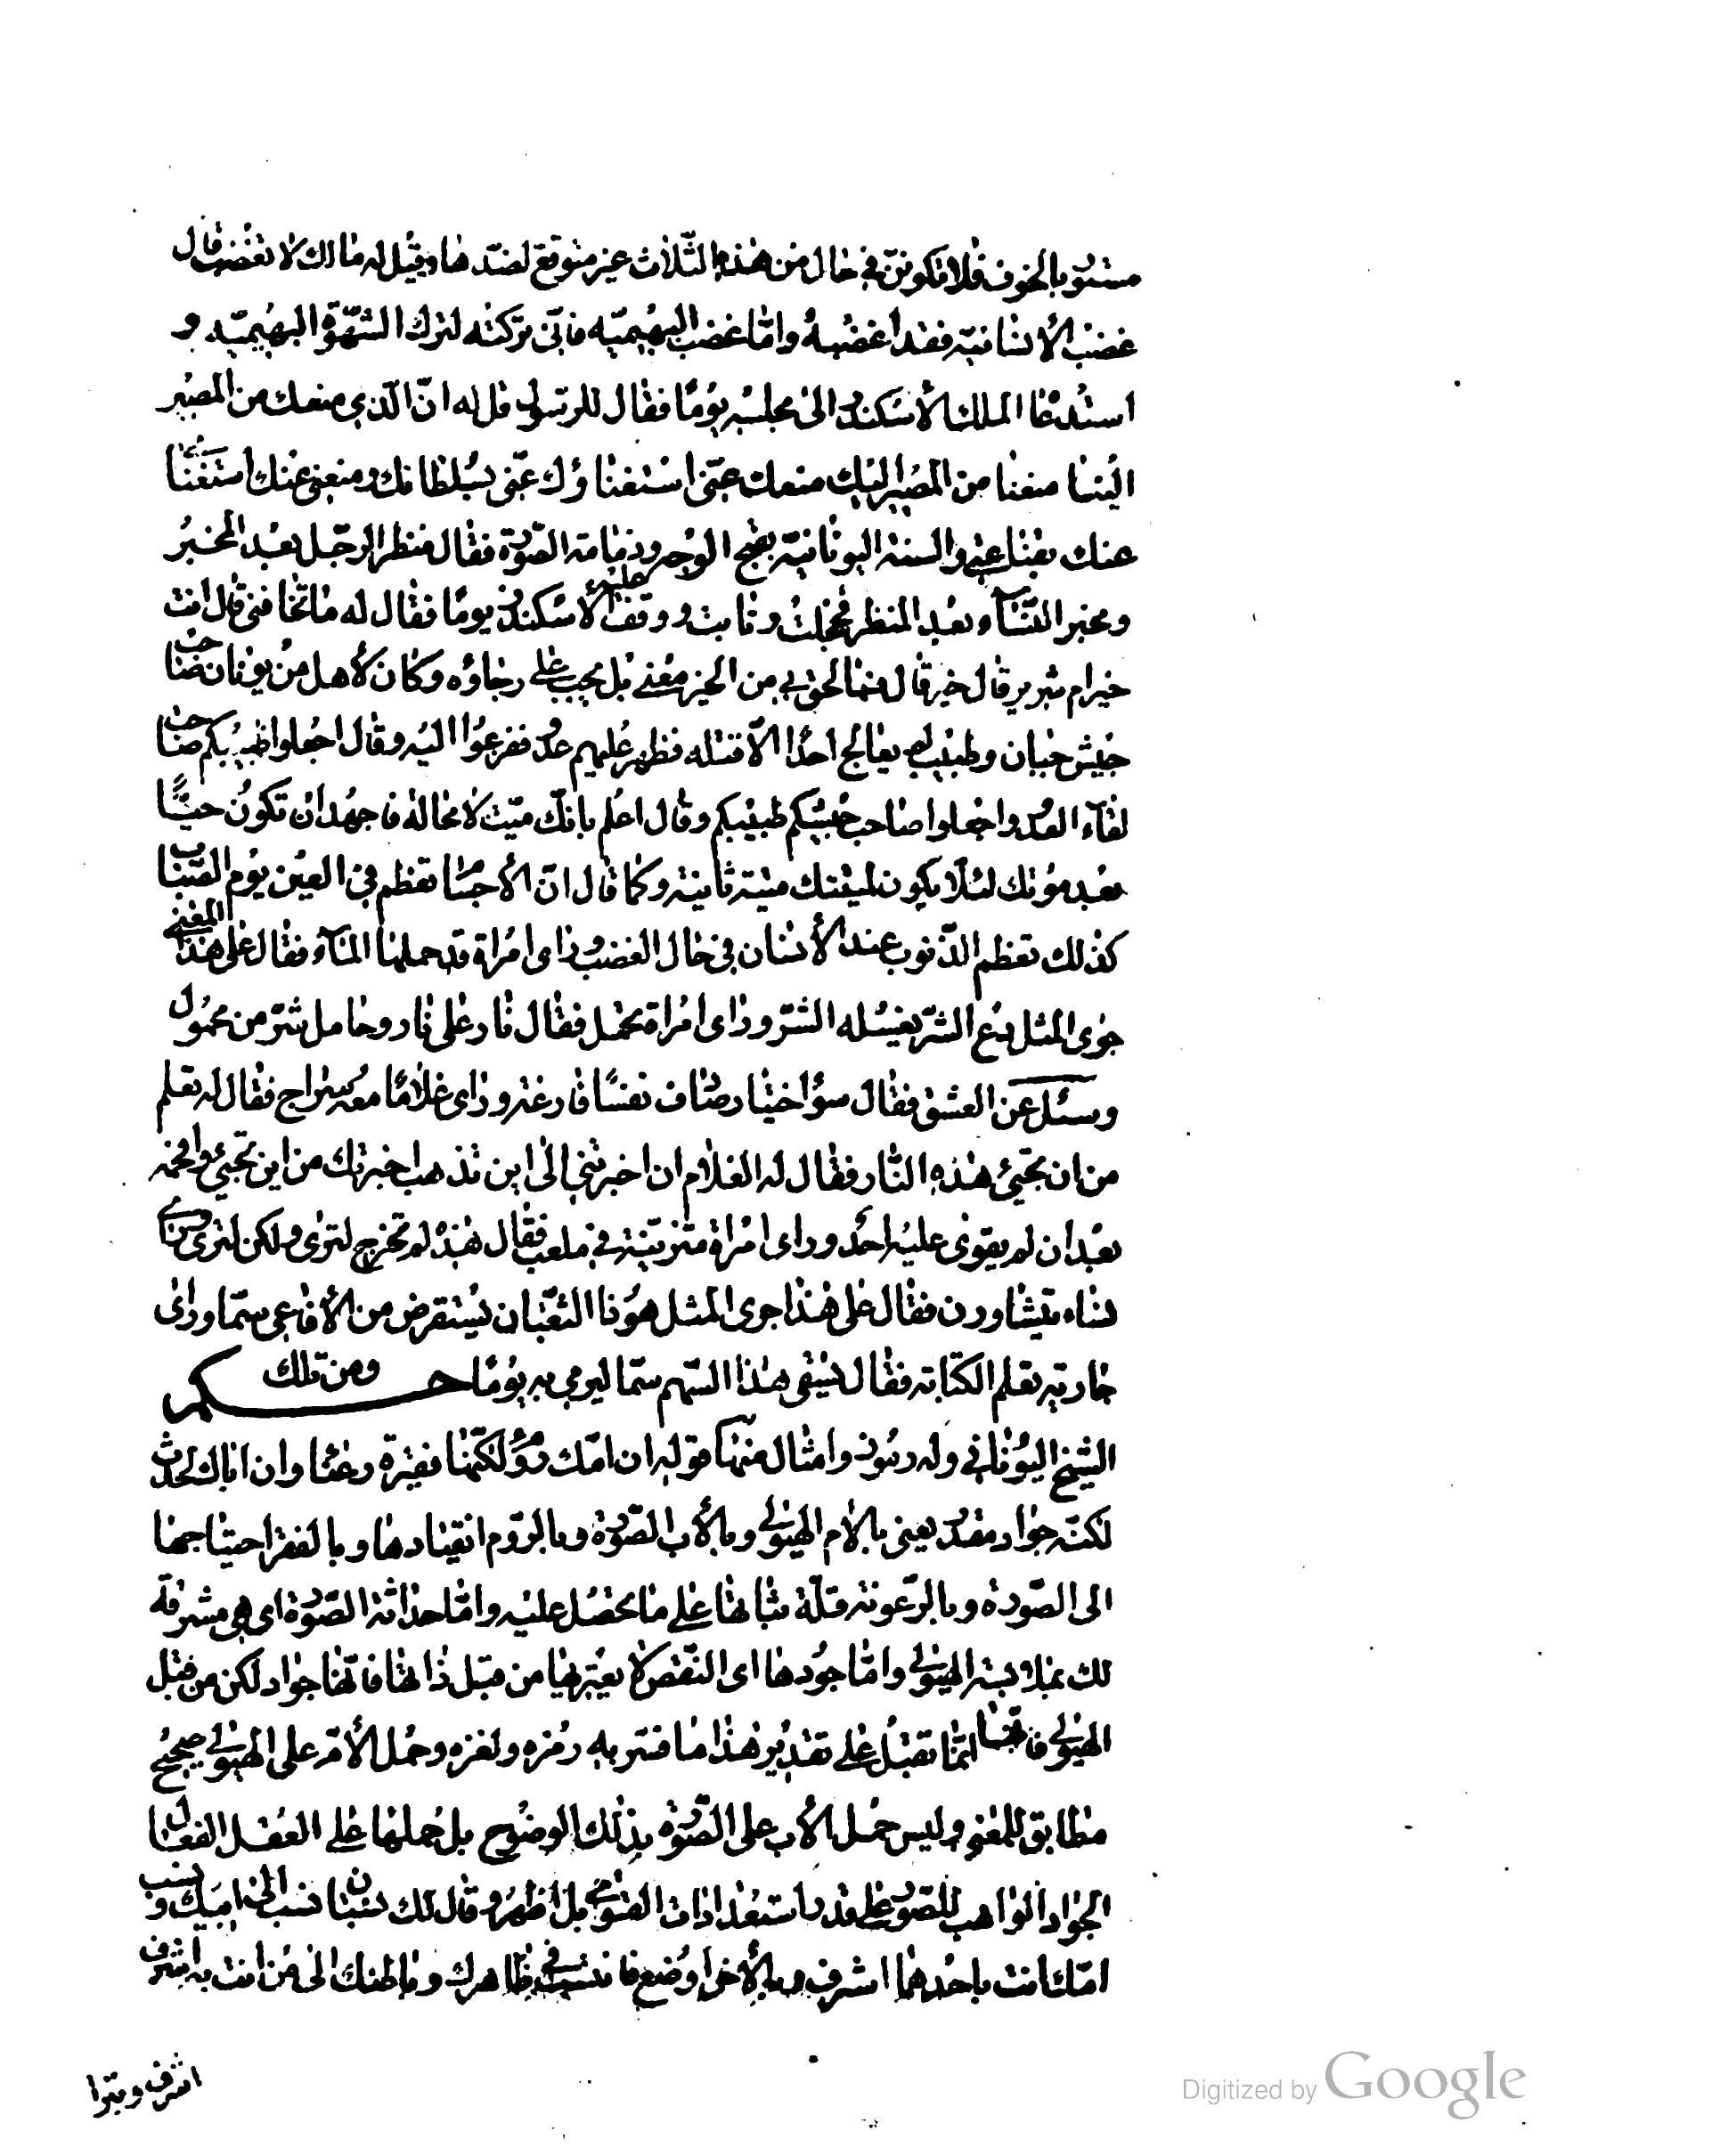 مستو بالخوف فلا تكونن في حال من هذه الثلاث غير متوقع لضدها وقيل له مالك لا تغضب قال
غضب الأنسانية فقد اغضبه واما غضب البهيمية فانى تركته لترك الشهوة البهيمية و
استدعا الملك الأسكندر الى مجلسه يومًا فقال للرسول قل له انّ الّذي منعك من المصير
الينا منعنا من المصير اليك منعك عنّى استغناؤك عنّى بسلطانك ومنعنى عنك استغنائى
عنك بقناعتى والسنة اليونانية بقبح الوجه وذمامة الصّورة فقال منظر الرجل بعد المخبر
ومخبر النّسآء بعد المنظر فخجلت وتابت ووقف عليه الأسكندر يومًا فقال له ما تخافنى قال انت
خير ام شرير قال خير قال فما لخوفى من الخير معنى بل يجب على رجاؤه وكان لأهل من يونان صاحب
جيش جبان وطبيب لم يعالج احدًا الّا قتله فظهر عليهم عدو ففزعوا اليه وقال اجعلوا طبيبكم صاحب
لقآء العدو واجعلوا صاحب جيشكم طبيبكم وقال اعلم بانّك ميّت لا محالة فاجهد ان تكون حيًّا
بعد موتك لئلّا يكون لميتتك ميتة ثانية وكما قال انّ الأجسام تعظم فى العين يوم الضباب
كذلك تعظم الذّنوب عند الأنسان فى حال الغضب وراى امراة قد حملها المآء فقال على هذا المعنى
جرى المثل دع الشرّ يغسله الشرّ وراى امراة تحمل نارا فقال نار على نار وحامل شرّ من محمول
وسئل عن العشق فقال سؤ اختيار صادف نفسًا فارغة وراى غلامًا معه سراج فقال له تعلم
من اين تجيئ هذه النّار فقال له الغلام ان اخبرتنى الى اين تذهب اخبرتك من اين تجيئ وافحمه
بعد ان لم يقوى عليه احد وراى امراة متزيّنة فى ملعب فقال هذه لم تخرج لترى ولكن لترى وراى
نساء يتشاورن فقال على هذا جرى المثل هو ذا الثعبان يستقرض من الأفاعى سمّا وراى
جارية تعلم الكتابة فقال يسقى هذا السّهم سمّا ليرمى به يومًا ومن تلك حكم
الشيخ اليونانى وله رموز وامثال منها قوله ان امّك رؤم لكنّها فقيرة رعنا وان اباك لحدث
لكنّه جواد مقدر يعنى بالأم الهيولى وبالأب الصّورة وبالرؤم انقيادها وبالفقر احتياجها
الى الصّورة وبالرّعونة قلّة ثباتها على ما تحصل عليه وامّا حداثة الصّورة اى هى مشرقة
لك بملابسة الهيولى وامّا جودها اى النّقص لا يعتريها من قبل ذاتها فانّها جواد لكن من قبل
الهيولى فانها انّما تقبل على تقدير هذا ما فسّر به رمزه ولغزه وحمل الأم على الهيولى صحيح
مطابق للمعنى وليس حمل الأب على الصّورة بذلك الوضوح بل حملها على العقل الفعال
الجواد الواهب للصّور على قدر استعدادات القوابل اظهر وقال لك نسبان نسب الى ابيك ونسب
امّك انت باحدهما اشرف وبالأخر اوضع فانتسب فى ظاهرك وباطنك الى من انت به اشرف
اشرف وتبرّا
Digitized by Google